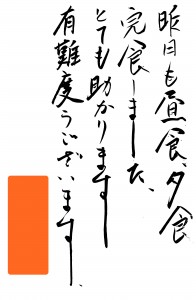 昨日も昼食夕食
完食しました、
とても助かります
有難度うございます、